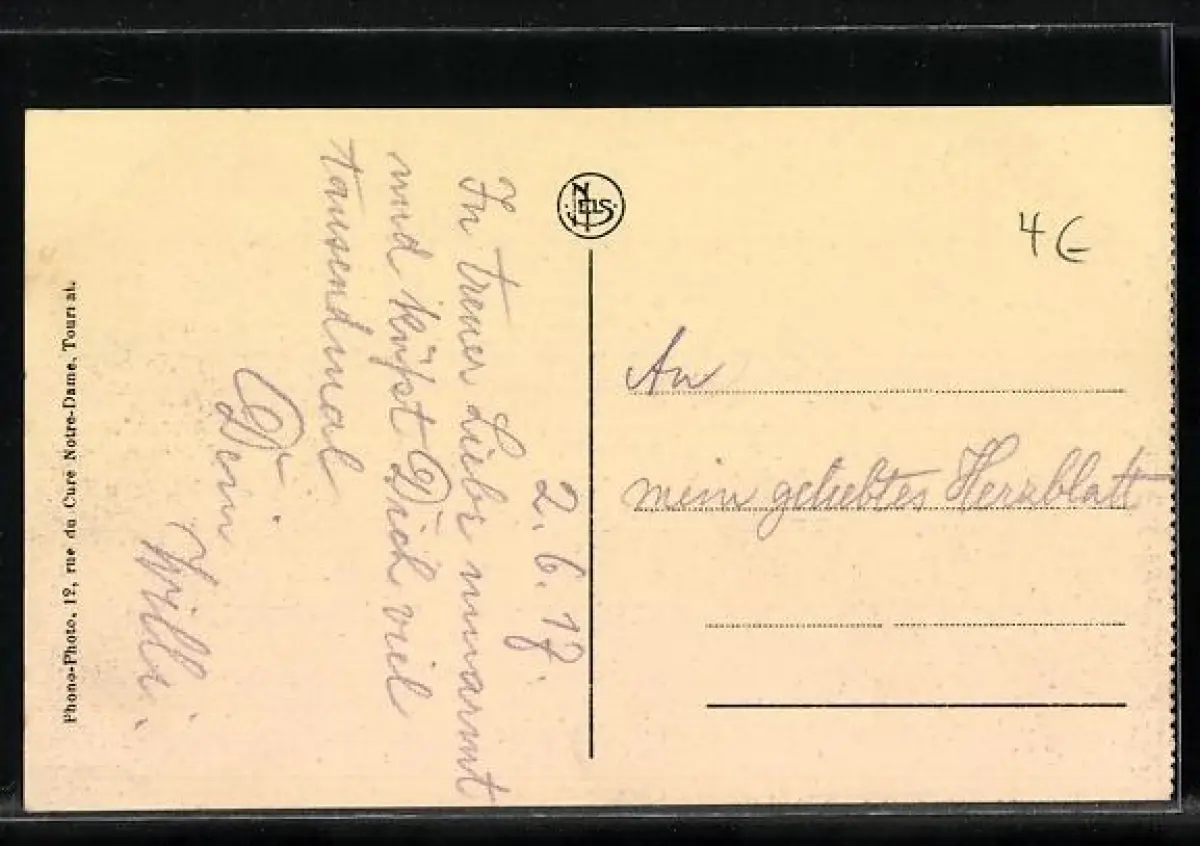 2. 6. 17.
In treuer Liebe umarmt
und küßt Dich viel
tausendmal
Dein
Willi.
NELS
4 €
An
mein geliebtes Herzblatt
Phono-Photo, 12, rue du Curé Notre-Dame, Tournai.